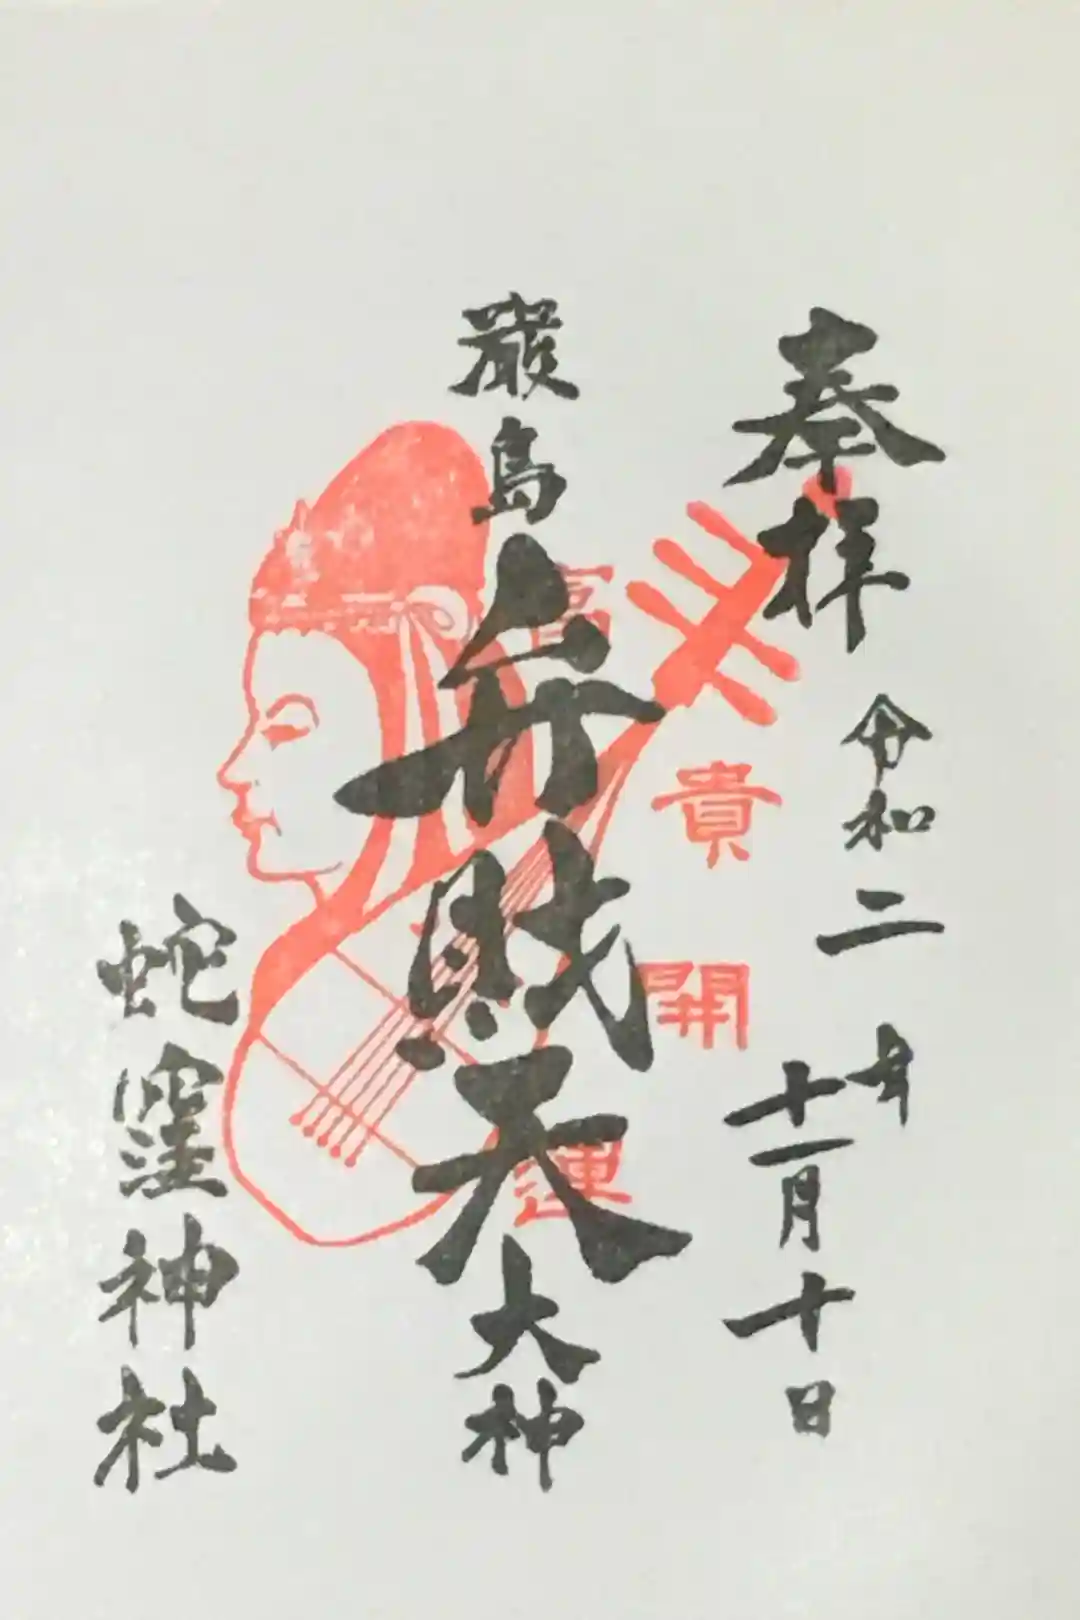 奉拝
令和二年
十一月十日
厳島弁財天大神
富貴開運
蛇窪神社